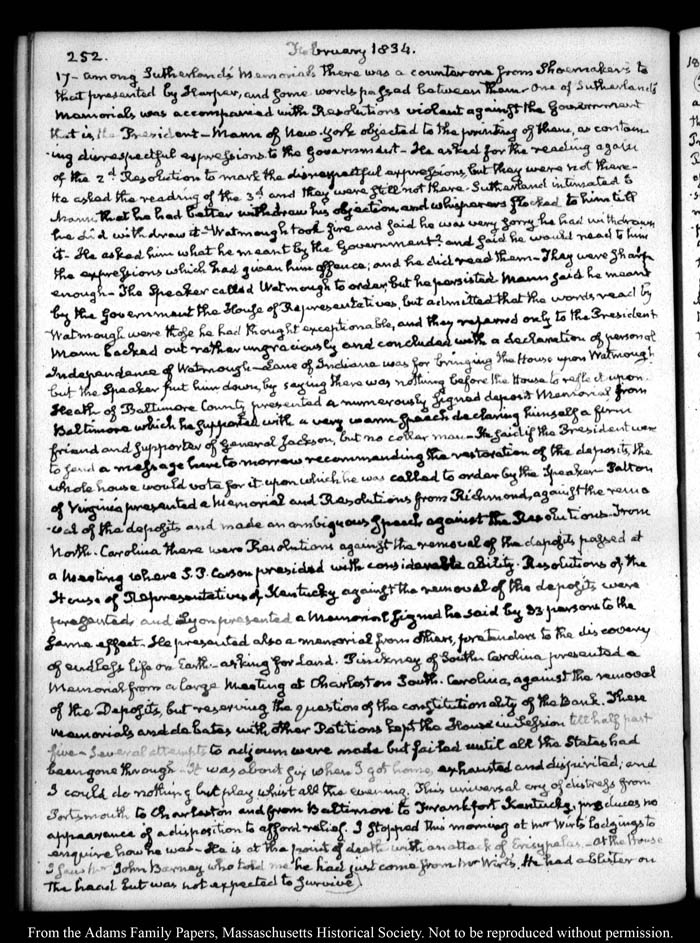 252.
February 1834.
17 – among Sutherland's Memorials there was a counter one from Shoemaker's to
that presented by Harper, and some words passed between them – One of Sutherland's
Memorials was accompanied with Resolutions violent against the Government
that is, the President – Mann of New-York objected to the printing of them, as contain
-ing disrespectful expressions to the Government – He asked for the reading again
of the 2d Resolution to mark the disrespectful expressions, but they were not there –
He asked the reading of the 3d and they were still not there – Sutherland intimated to
Mann that he had better withdraw his objection, and whisperers flocked to him till
he did withdraw it – Watmough took fire and said he was very sorry he had withdrawn
it – He asked him what he meant by the Government? and said he would read to him
the expressions which had given him offence; and he did read them – They were sharp
enough – The Speaker called Watmough to order, but he persisted – Mann said he meant
by the Government the House of Representatives, but admitted that the words read by
Watmough were those he had thought exceptionable, and they referred only to the President
Mann backed out rather ungraciously and concluded with a declaration of personal
Independence of Watmough – Lane of Indiana was for bringing the House upon Watmough
but the Speaker put him down, by saying there was nothing before the House to reflect upon.
Heath of Baltimore County presented a numerously signed deposit Memorial from
Baltimore which he supported with a very warm speech declaring himself a firm
friend and supporter of General Jackson, but no collar man – He said if the President were
to send a message here to morrow recommending the restoration of the deposits, the
whole house would vote for it upon which he was called to order by the Speaker – Patton
of Virginia presented a Memorial and Resolutions from Richmond, against the remo
-val of the deposits and made an ambiguous speech against the Resolutions. From
North-Carolina there were Resolutions against the removal of the deposits passed at
a meeting where S. P. Carson presided with considerable ability. Resolutions of the
House of Representatives of Kentucky against the removal of the deposits were
presented, and Lyon presented a Memorial signed he said by 83 persons to the
same effect – He presented also a memorial from others, pretenders to the discovery
of endless life on Earth – asking for Land. Pinckney of South Carolina presented a
Memorial from a large meeting at Charleston South-Carolina, against the removal
of the Deposits, but reserving the question of the constitutionality of the Bank. These
memorials and debates with other Petitions kept the House in Session till half past
five – Several attempts to adjourn were made but failed until all the States had
been gone through – It was about six when I got home, exhausted and dispirited; and
I could do nothing but play whist all the evening. This universal cry of distress from
Portsmouth to Charleston and from Baltimore to Frankfort Kentucky, produces no
appearance of a disposition to afford relief. I stopped this morning at Mr Wirt's lodgings to
enquire how he was – He is at the point of death with an attack of Erisypelas. – At the House
I saw Mr John Barney who told me he had just come from Mr Wirt's. He had a blister on
the head but was not expected to survive
From the Adams Family Papers, Massachusetts Historical Society. Not to be reproduced without permission.